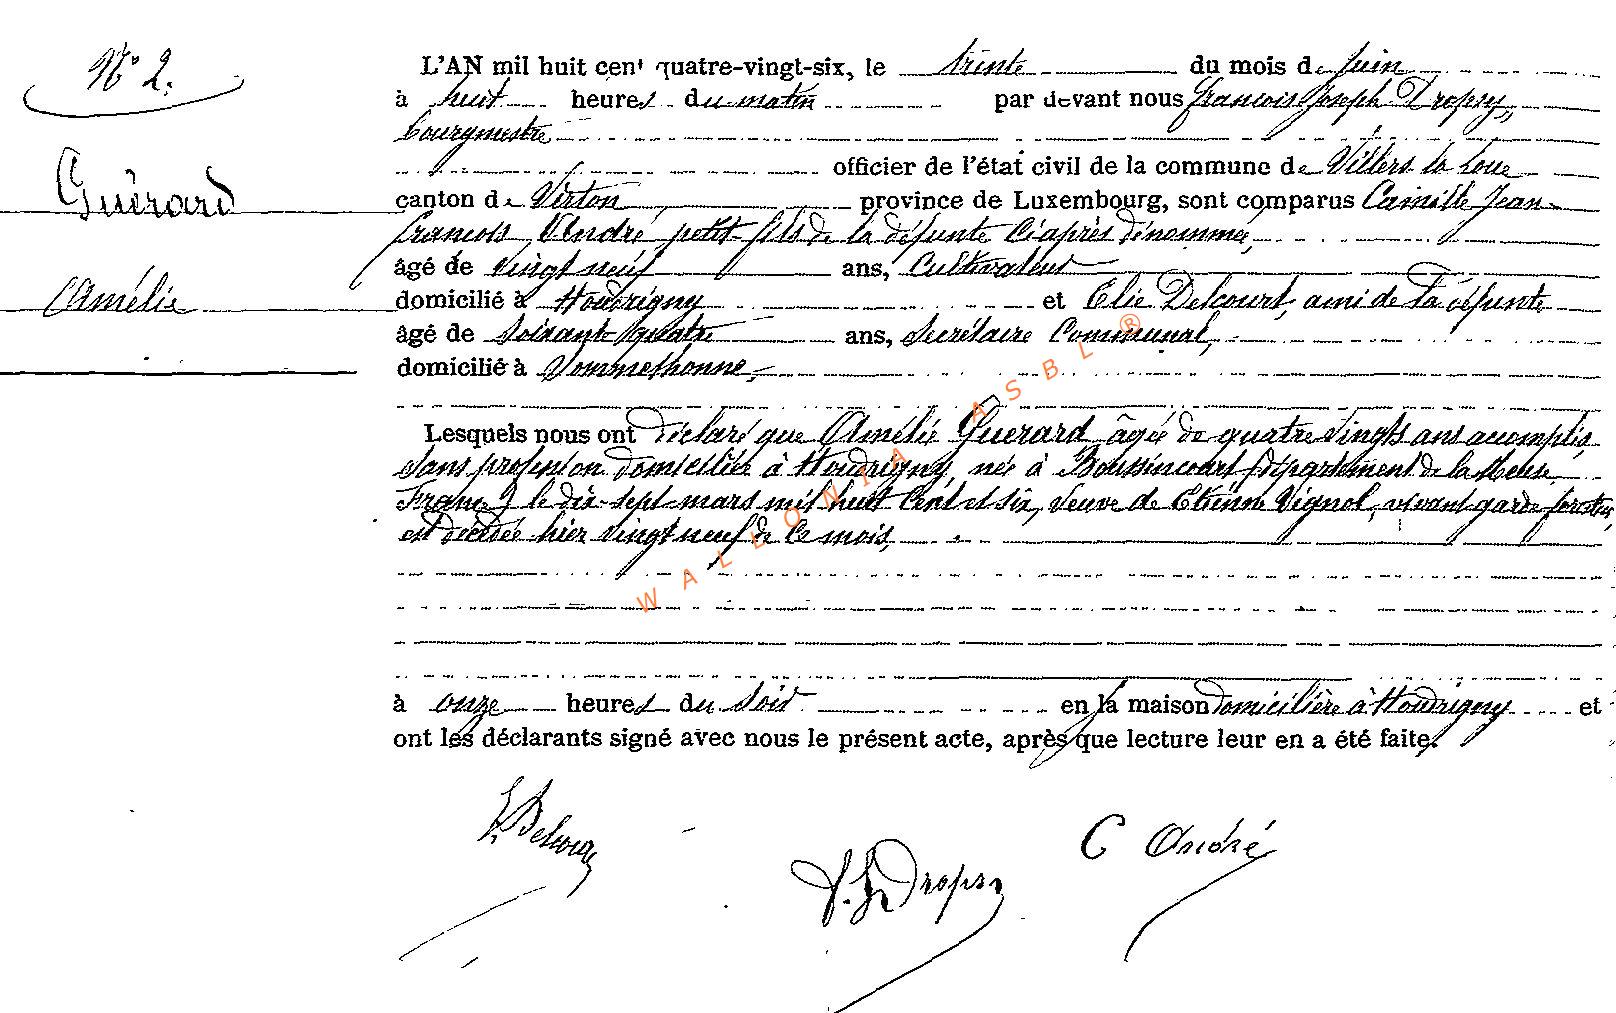 N° 2.
Guérard
Amélie
L'AN mil huit cent quatre-vingt-six, le trente du mois de Juin
à huit heures du matin par devant nous François Joseph Dropsy,
bourgmestre
officier de l'état civil de la commune de Villers la Loue
canton de Virton province de Luxembourg, sont comparus Camille Jean-
François André, petit-fils de la défunte ciaprès dénommée,
âgé de vingt neuf ans, Cultivateur
domicilié à Houdrigny et Elie Delcourt, ami de la défunte
âgé de soixante quatre ans, Secrétaire Communal,
domicilié à Sommethonne,
Lesquels nous ont déclaré que Amélie Guérard âgée de quatre vingts ans accomplis,
sans profession domiciliée à Houdrigny, née à Boussincourt (département de la Meuse
France) le dix-sept mars mil huit cent et six, veuve de Etienne Vignol, vivant garde forestier,
est décédée hier vingt neuf de ce mois,
à onze heures du soir en la maison domicilière à Houdrigny et
ont les déclarants signé avec nous le présent acte, après que lecture leur en a été faite.
E. Delcourt
F. J. Dropsy
C André
WALLONIA ASBL ®